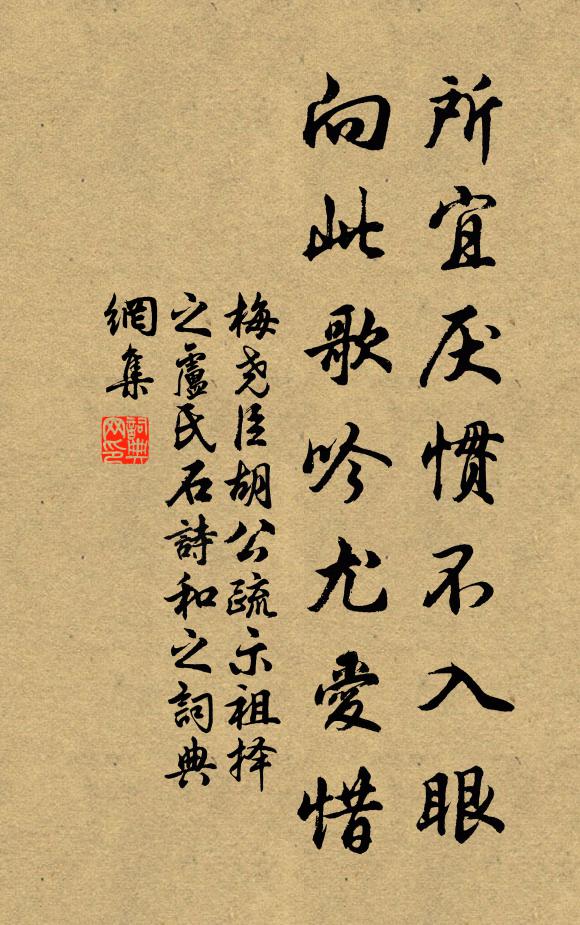 所宜厌慣不入眼
向此歌吟尤愛惜
梅尧臣胡公疏示祖择
之盧氏石詩和之詞典
網集
詞典
网印